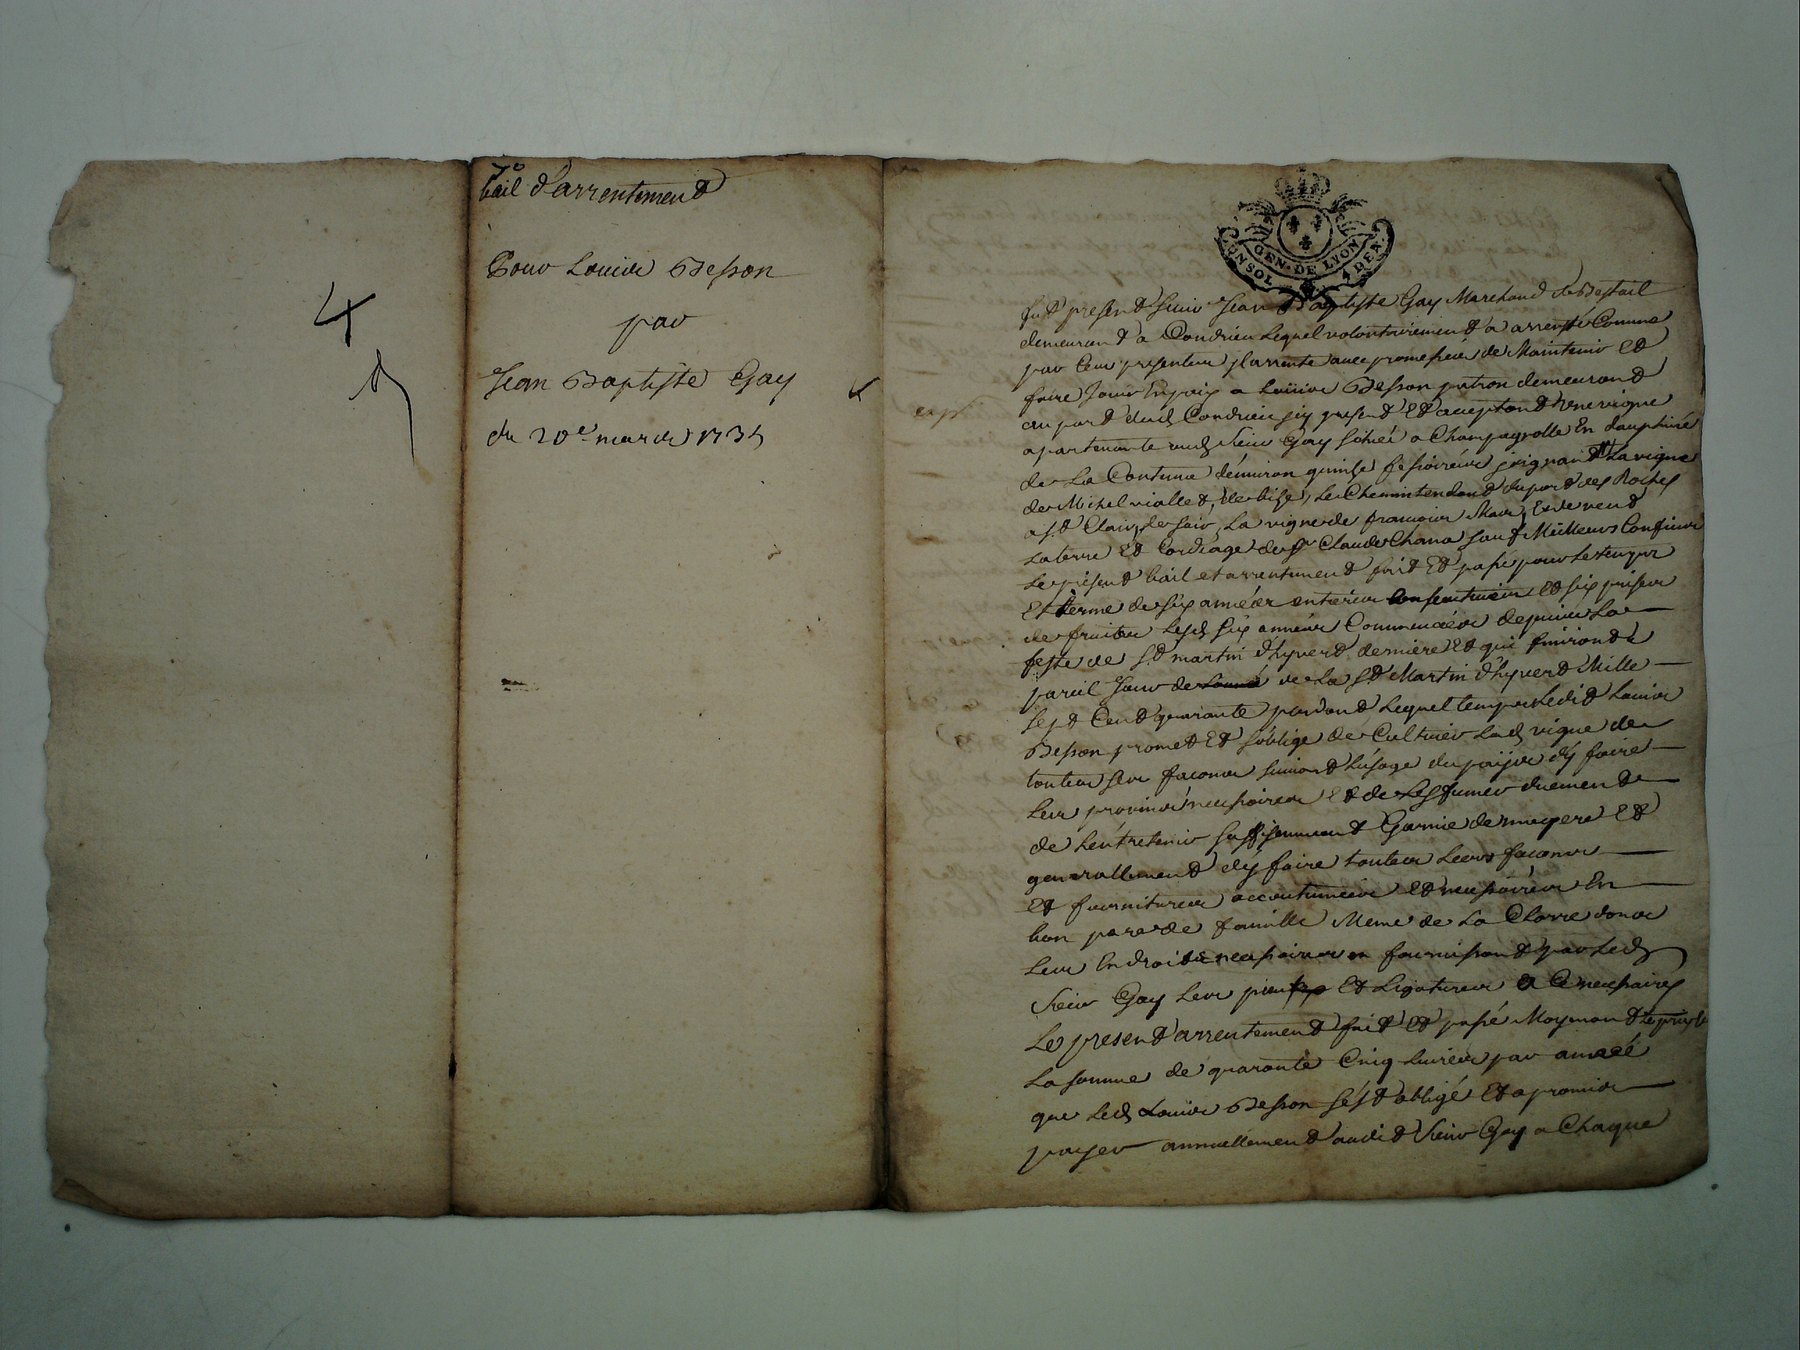 4
7e
bail d'arrentement
Pour Louis Besson
par
Jean Baptiste Gay
du 20e mars 1735
exp.
GEN. DE LYON
UN SOL 4 DEN.
fut present sieur Jean Baptiste Gay Marchand de Bestail
demeurant a Condrieu Lequel volontairement a arrenté Comme
par Ces presentes jl arrente avec promesses de Maintenir Et
faire Jouir En paix a Loüis Besson patron demeurant
au port dud Condrieu jcy present Et aceptant Une vigne
apartenante aud Sieur Gay situéé a Champagnolle En dauphiné
de La Contenue d'environ quinse fessoiréés joignant La vigne
de Michel viallet, de bise, Le Chemin tendant du port des Roches
a St Clair, de soir, La vigne de francois Mas, Et de vent
La terre Et Cordéage de Sr Claude Chana sauf Meilleurs Confins
Le present bail et arrentement fait Et passé pour Le temps
Et terme de six annéés entieres Et six prises
de fruits Lesd six annéés Commencéés depuis La
feste de St martin d'hyvert derniere Et qui finiront a
pareil Jour de La St Martin d'hyvert Mille
sept Cent quarante pendant Lequel temps Ledit Louis
Besson promet Et s'oblige de Cultiver Lad vigne de
toutes ses facons suivant L'usage du païs d'y faire
Les provins necessaires Et de Les fumer duement
de L'entretenir suffisamment Garnie de Et
generallement d'y faire toutes Leurs facons
Et fournitures accoutumées Et necessaires En
bon pere de famille Meme de La Clorre dans
Les Endroits necessaires en fournissant par Led
Sieur Gay Les Et Ligatures a Ce necessaires
Le present arrentement fait Et passé Moyenant Le prix de
La somme de quarante Cinq Livres par année
que Led Loüis Besson s'est obligé Et a promis
payer annuellement audit Sieur Gay a Chaque